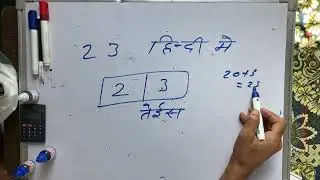 23 हिन्दी में
2 3
तेईस
20+3
= 23